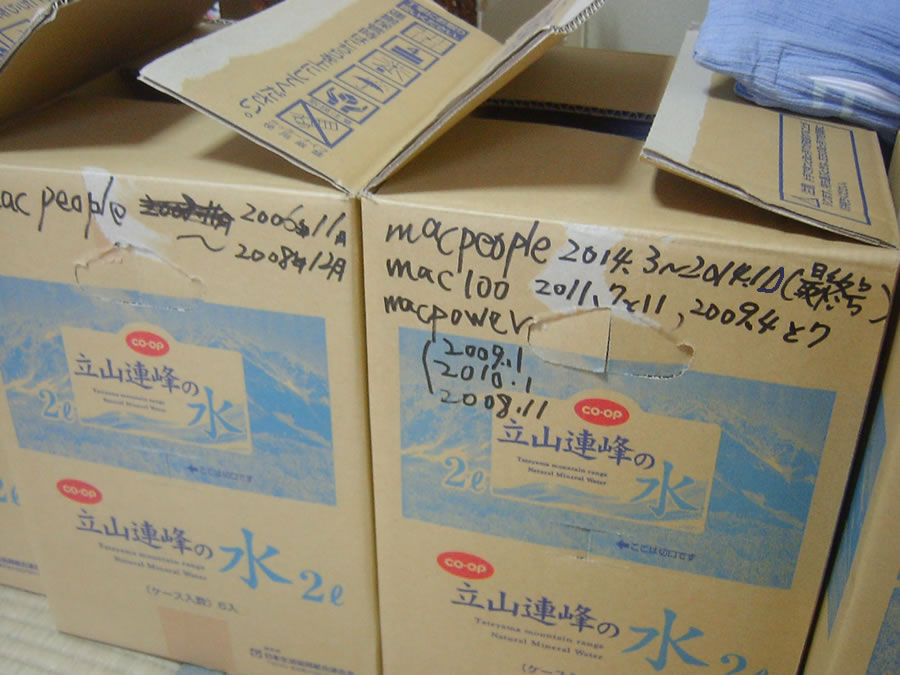 mac people 2006年11月
～2008年12月
co-op
立山連峰の
Tateyama mountain range
Natural Mineral Water
水
2ℓ
ここは切口です
co-op
立山連峰の
Tateyama mountain range
Natural Mineral Water
水 2ℓ
(ケース入数) 6入
日本生活協同組合連合会
macpeople 2014.3～2014.10(最終号)
mac100 2011.7と11, 2009.4と7
macpower
2009.1
2010.1
2008.11
co-op
立山連峰の
Tateyama mountain range
Natural Mineral Water
水
2ℓ
ここは切口です
co-op
立山連峰の
Tateyama mountain range
Natural Mineral Water
水 2
(ケース入